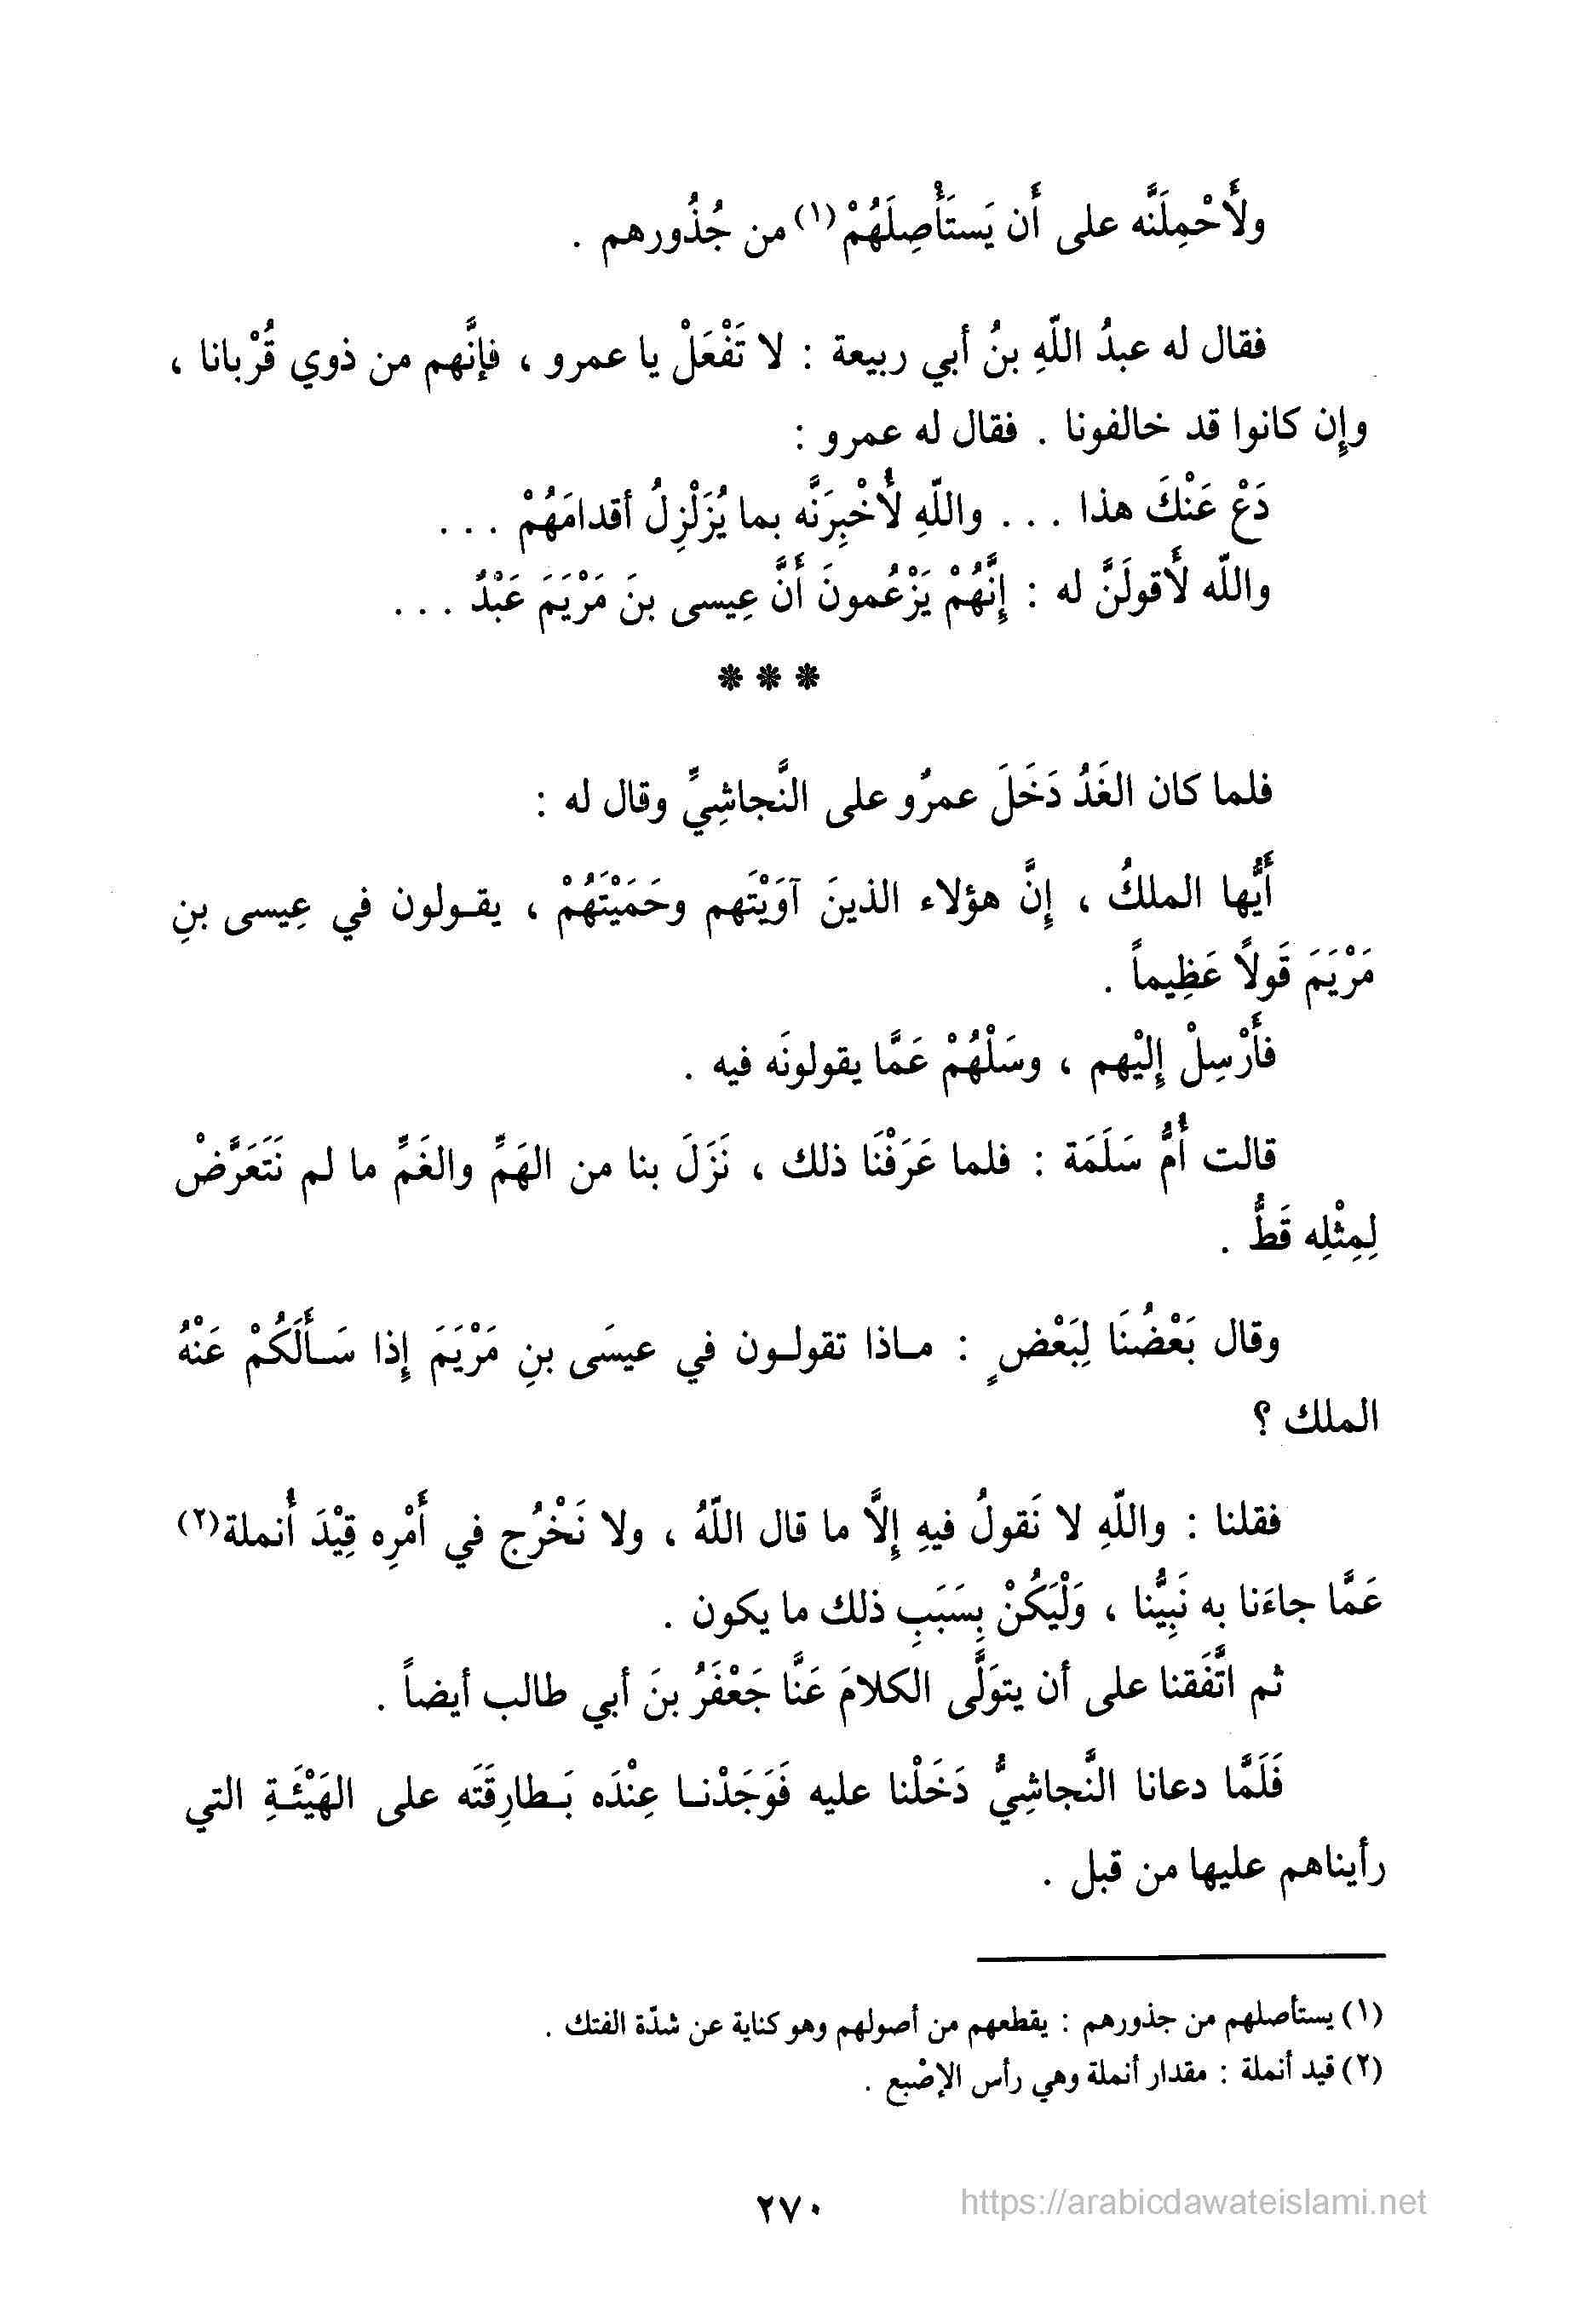 ولَأَحْمِلَنَّه على أَن يَستَأْصِلَهُمْ(١) من جُذُورهم .
فقال له عبدُ اللّهِ بنُ أبي ربيعة : لا تَفْعَلْ يا عمرو ، فإنَّهم من ذوي قُرْبانا ،
وإِن كانوا قد خالفونا . فقال له عمرو :
دَعْ عَنْكَ هذا ... واللّهِ لَأُخْبِرَنَّه بما يُزَلْزِلُ أقدامَهُمْ ...
واللّه لَأقولَنَّ له : إِنَّهُمْ يَزْعُمونَ أَنَّ عِيسى بنَ مَرْيَمَ عَبْدٌ ...
***
فلما كان الغَدُ دَخَلَ عمرُو على النَّجاشِيِّ وقال له :
أَيُّها الملكُ ، إِنَّ هؤلاء الذينَ آوَيْتَهم وحَمَيْتَهُمْ ، يقـولون في عِيسى بنِ
مَرْيَمَ قَولاً عَظِيماً .
فأَرْسِلْ إِليْهم ، وسَلْهُمْ عَمَّا يقولونَه فيه .
قالت أُمُّ سَلَمَة : فلما عَرَفْنَا ذلك ، نَزَلَ بنا من الهَمِّ والغَمِّ ما لم نَتَعَرَّضْ
لِمِثْلِه قَطُّ .
وقال بَعْضُنَا لِبَعْضٍ : مـاذا تقولـون في عيسَى بنِ مَرْيَمَ إِذا سَـأَلَكُمْ عَنْهُ
الملك ؟
فقلنا : واللّهِ لا نَقولُ فيهِ إِلَّا ما قال اللّهُ ، ولا نَخْرُج في أَمْرِه قِيْدَ أُنملة(٢)
عَمَّا جاءَنا به نَبِيُّنا ، وَلْيَكُنْ بِسَبَبِ ذلك ما يكون .
ثم اتَّفَقنا على أن يتوَلَّى الكلامَ عَنَّا جَعْفَرُ بنَ أبي طالب أيضاً .
فَلَمَّا دعانا النَّجاشِيُّ دَخَلْنا عليه فَوَجَدْنـا عِنْدَه بَـطارِقَتَه على الهَيْئَـةِ التي
رأيناهم عليها من قبل .
(١) يستأصلهم من جذورهم : يقطعهم من أصولهم وهو كناية عن شدّة الفتك .
(٢) قيد أنملة : مقدار أنملة وهي رأس الإصْبع .
٢٧٠
https://arabicdawateislami.net